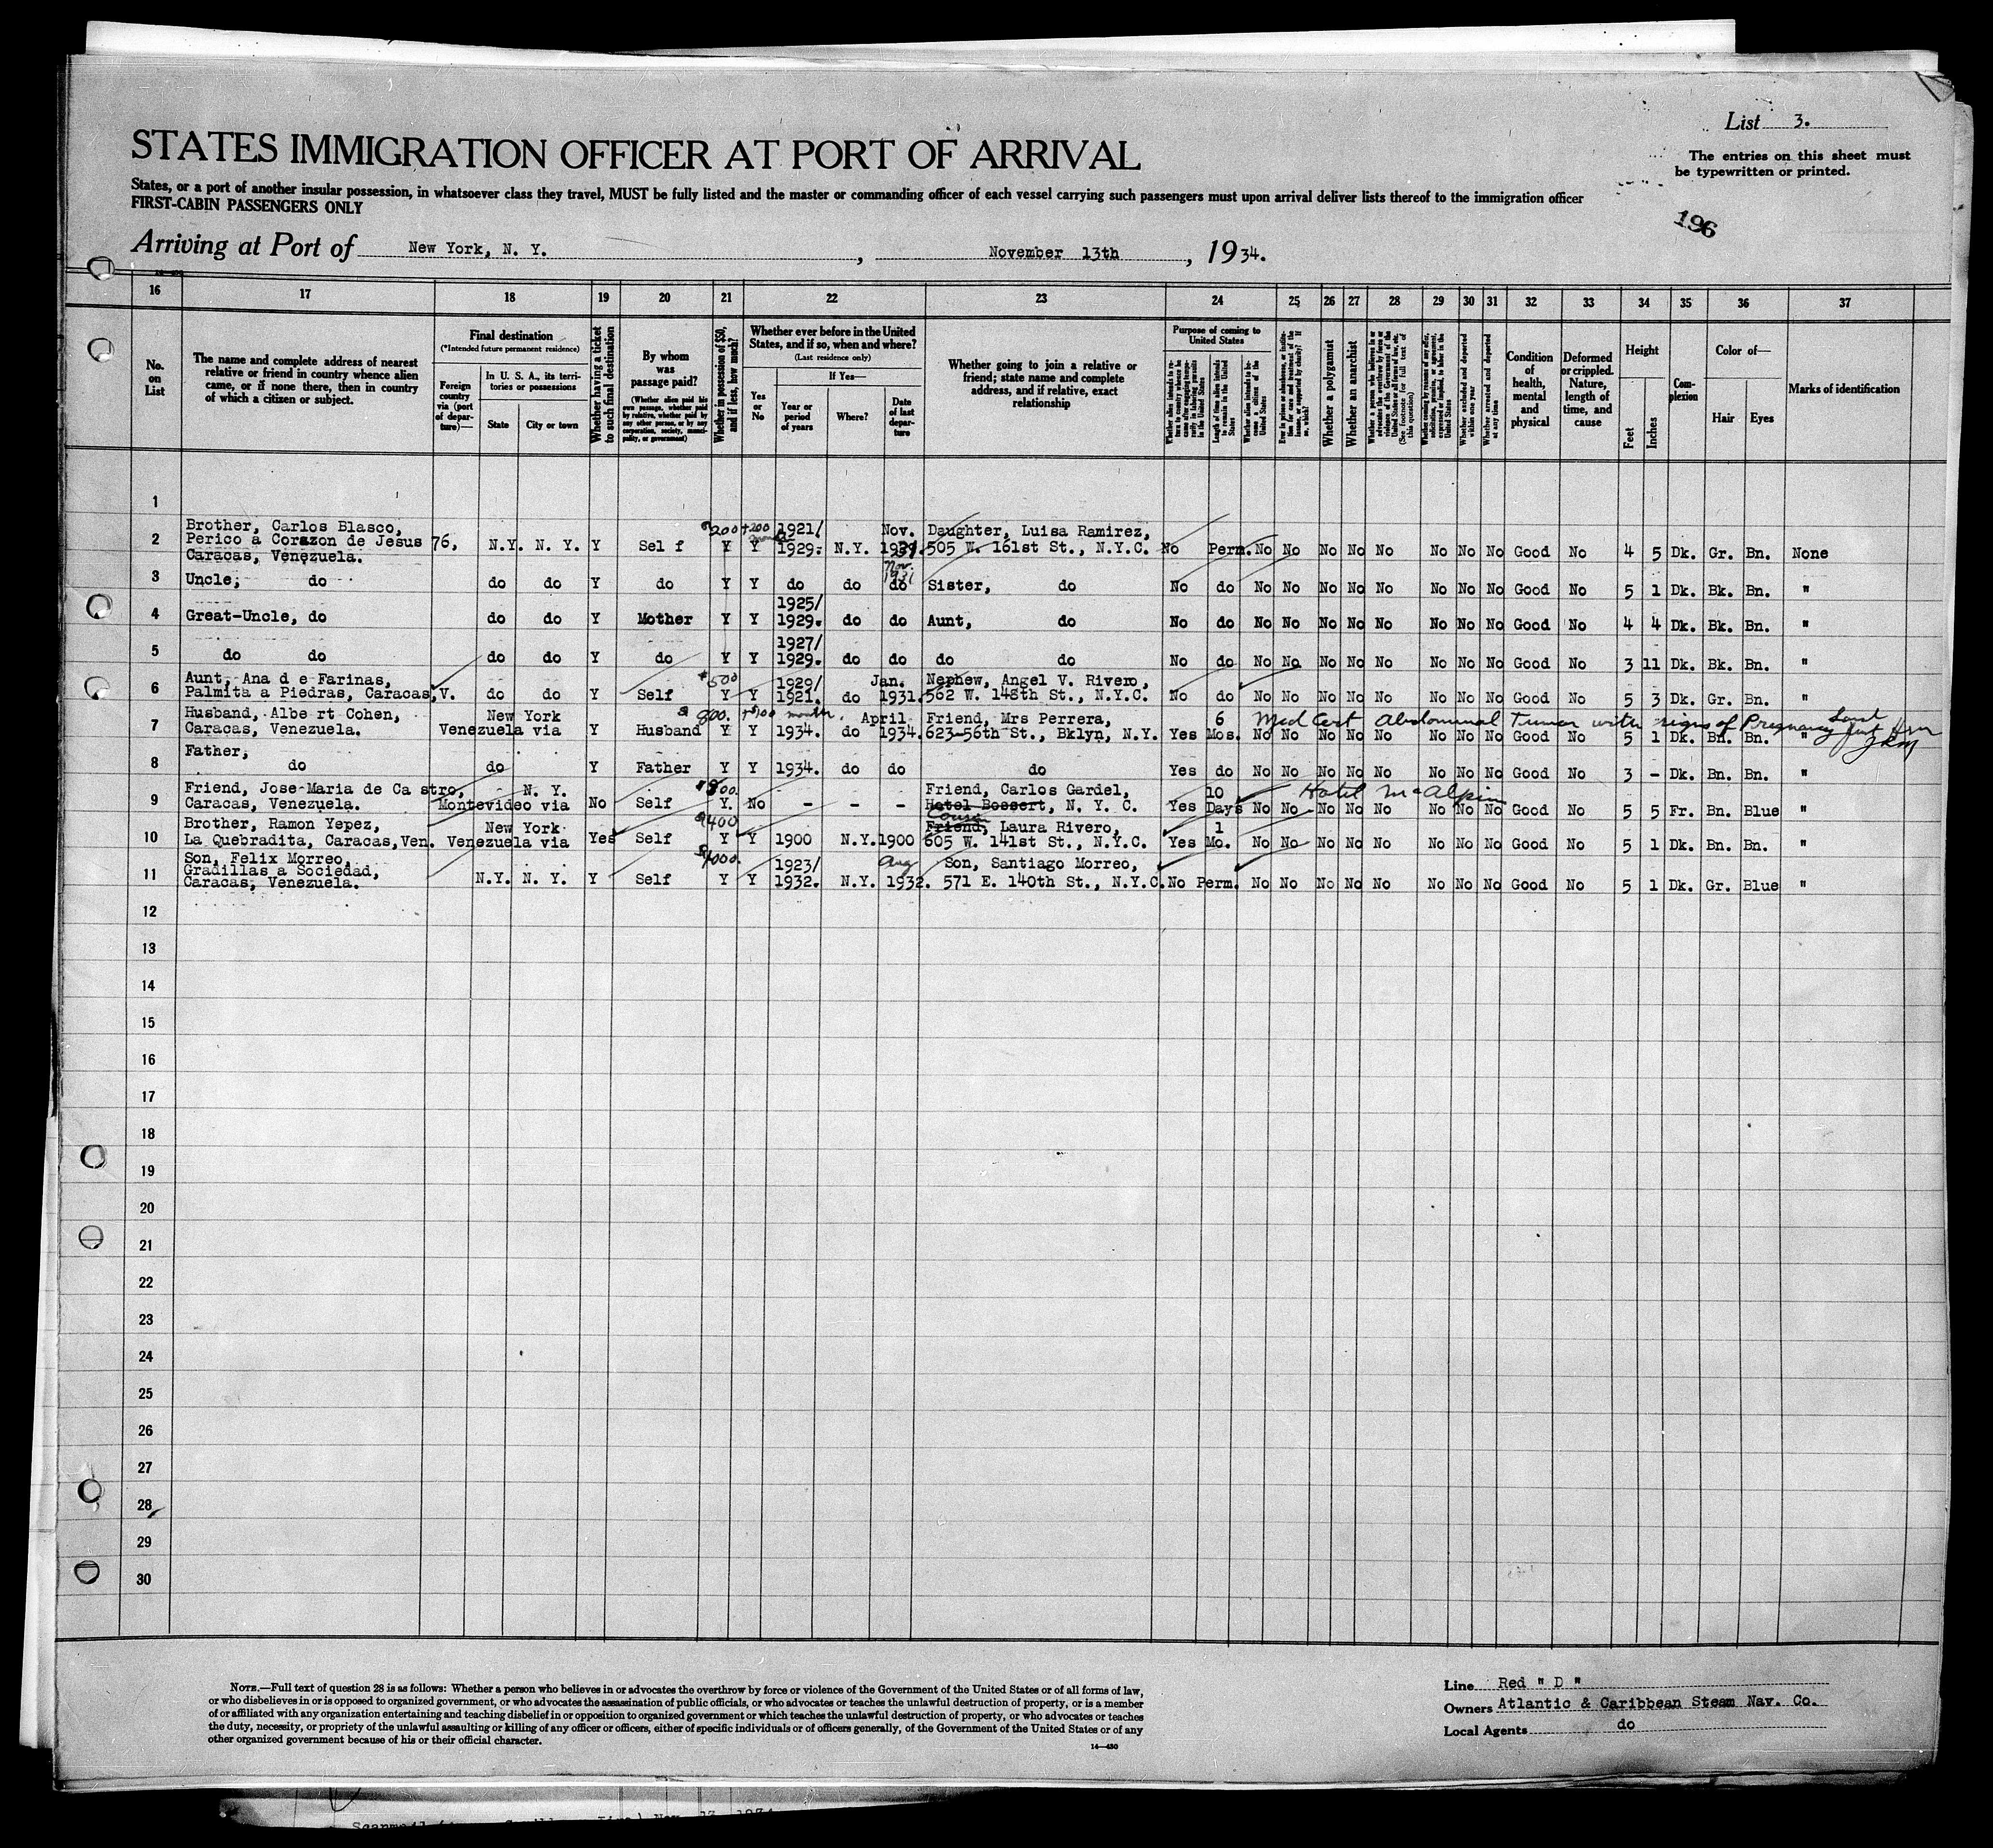 List 3.
STATES IMMIGRATION OFFICER AT PORT OF ARRIVAL
The entries on this sheet must
be typewritten or printed.
States, or a port of another insular possession, in whatsoever class they travel, MUST be fully listed and the master or commanding officer of each vessel carrying such passengers must upon arrival deliver lists thereof to the immigration officer
FIRST-CABIN PASSENGERS ONLY
196
Arriving at Port of New York, N. Y. , November 13th , 1934.
16 17 18 19 20 21 22 23 24 25 26 27 28 29 30 31 32 33 34 35 36 37
No. on List
The name and complete address of nearest
relative or friend in country whence alien
came, or if none there, then in country
of which a citizen or subject.
Final destination
(*Intended future permanent residence)
Foreign country via (port of depar- ture)—
In U. S. A., its terri-
tories or possessions
State
City or town
Whether having a ticket
to such final destination
By whom
was
passage paid?
(Whether alien paid his
own passage, whether paid
by relative, whether paid by
any other person, or by any
corporation, society, munici-
pality, or government)
Whether in possession of $50,
and if less, how much?
Whether ever before in the United
States, and if so, when and where?
(Last residence only)
Yes or No
If Yes—
Year or period of years
Where?
Date of last depar- ture
Whether going to join a relative or
friend; state name and complete
address, and if relative, exact
relationship
Purpose of coming to
United States
Length of time alien intends to remain in the United States
Whether alien intends to be- come a citizen of the United States
Whether a polygamist
Whether an anarchist
(See footnote for full text of this question)
Whether excluded and deported within one year
Whether arrested and deported at any time
Condition of health, mental and physical
Deformed or crippled. Nature, length of time, and cause
Height
Feet
Inches
Com- plexion
Color of—
Hair
Eyes
Marks of identification
1
Brother, Carlos Blasco,
2 Perico a Corazon de Jesus 76, N.Y. N. Y. Y Self $200 Y Y 1921/ 1929. N.Y. Nov. Daughter, Luisa Ramirez, 505 W. 161st St., N.Y.C. No Perm. No No No No No No No No Good No 4 5 Dk. Gr. Bn. None
Caracas, Venezuela.
3 Uncle, do do do Y do Y Y do do Nov. 1931 do Sister, do No do No No No No No No No No Good No 5 1 Dk. Bk. Bn. "
4 Great-Uncle, do do do Y Mother Y Y 1925/ 1929. do do Aunt, do No do No No No No No No No No Good No 4 4 Dk. Bk. Bn. "
5 do do do do Y do Y Y 1927/ 1929. do do do do No do No No No No No No No No Good No 3 11 Dk. Bk. Bn. "
Aunt, Ana d e Farinas,
6 Palmita a Piedras, Caracas, V. do do Y Self $500 Y Y 1929/ 1921. do Jan. 1931. Nephew, Angel V. Rivero, 562 W. 148th St., N.Y.C. No do No No No No No No No No Good No 5 3 Dk. Gr. Bn. "
Husband, Albe rt Cohen, New York
7 Caracas, Venezuela. Venezuela via Y Husband $800. Y Y 1934. do April 1934. Friend, Mrs Perrera, 623-56th St., Bklyn, N.Y. Yes 6 Mos. No No No No No No No No Good No 5 1 Dk. Bn. Bn. "
Med Cert Abdominal Tumor with signs of Pregnancy
8 Father, do do Y Father Y Y 1934. do do do Yes do No No No No No No No No Good No 3 - Dk. Bn. Bn. "
Friend, Jose Maria de Ca stro, N. Y.
9 Caracas, Venezuela. Montevideo via No Self Y. No - - - Friend, Carlos Gardel, Hotel Bossert, N. Y. C. Yes 10 Days No No No No No No No No Good No 5 5 Fr. Bn. Blue "
Hotel McAlpin
Brother, Ramon Yepez, New York
10 La Quebradita, Caracas, Ven. Venezuela via Yes Self $400 Y Y 1900 N.Y. 1900 Cousin Friend, Laura Rivero, 605 W. 141st St., N.Y.C. Yes 1 Mo. No No No No No No No No Good No 5 1 Dk. Bn. Bn. "
Son, Felix Morreo,
11 Gradillas a Sociedad, N.Y. N. Y. Y Self Y Y 1923/ 1932. N.Y. Aug 1932. Son, Santiago Morreo, 571 E. 140th St., N.Y.C. No Perm. No No No No No No No No Good No 5 1 Dk. Gr. Blue "
Caracas, Venezuela.
12
13
14
15
16
17
18
19
20
21
22
23
24
25
26
27
28
29
30
NOTE.—Full text of question 28 is as follows: Whether a person who believes in or advocates the overthrow by force or violence of the Government of the United States or of all forms of law,
or who disbelieves in or is opposed to organized government, or who advocates the assassination of public officials, or who advocates or teaches the unlawful destruction of property, or is a member
of or affiliated with any organization entertaining and teaching disbelief in or opposition to organized government or which teaches the unlawful destruction of property, or who advocates or teaches
the duty, necessity, or propriety of the unlawful assaulting or killing of any officer or officers, either of specific individuals or of officers generally, of the Government of the United States or of any
other organized government because of his or their official character.
14—430
Line Red " D "
Owners Atlantic & Caribbean Steam Nav. Co.
Local Agents do